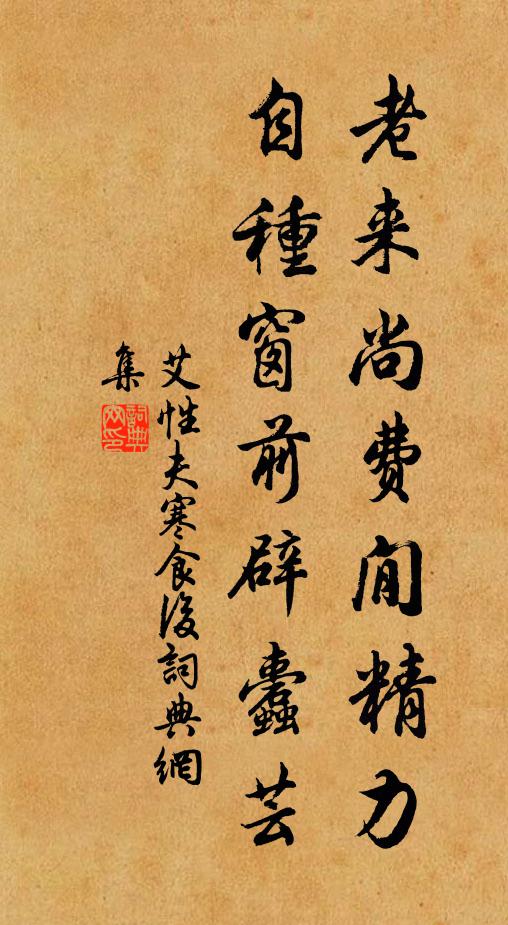 老来尚費閒精力
自種窗前辟蠹芸
艾性夫寒食後詞典網
集
詞典
网印